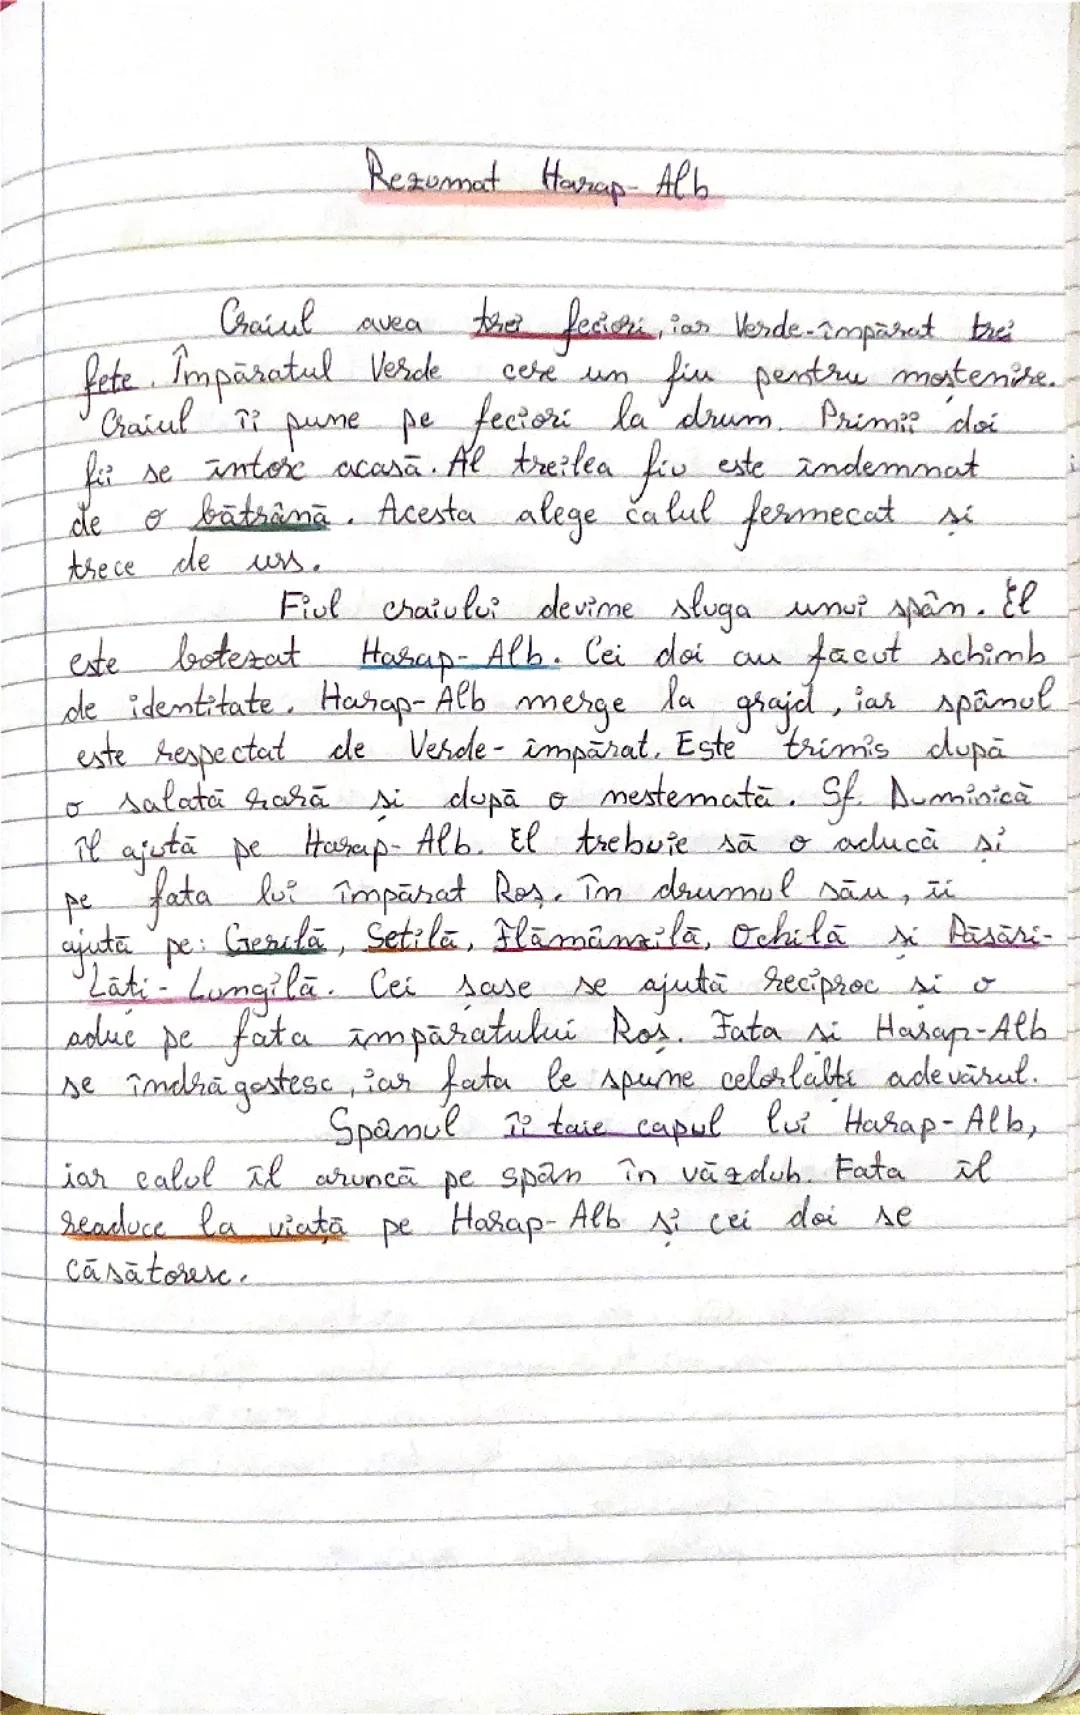 Rezumat Harap-Alb
Craiul avea trei feciori, iar Verde-împărat trei
fete. Împăratul Verde cere un fiu pentru moștenire.
Craiul îi pune pe feciori la drum. Primii doi
fii se întorc acasă. Al treilea fiu este îndemnat
de o bătrână. Acesta alege calul fermecat și
trece de urs.
Fiul craiului devine sluga unui spân. El
este botezat Harap-Alb. Cei doi au făcut schimb
de identitate. Harap-Alb merge la grajd, iar spânul
este respectat de Verde-împărat. Este trimis după
o salată rară și după o nestemată. Sf. Duminică
îl ajută pe Harap-Alb. El trebuie să o aducă și
pe fata lui împărat Roș. În drumul său, îi
ajută pe: Gerilă, Setilă, Flămânzilă, Ochilă și Păsări-
Lăți-Lungilă. Cei șase se ajută reciproc și o
aduc pe fata împăratului Roș. Fata și Harap-Alb
se îndrăgostesc, iar fata le spune celorlalți adevărul.
Spânul îi taie capul lui Harap-Alb,
iar calul îl aruncă pe spân în văzduh. Fata îl
readuce la viață pe Harap-Alb și cei doi se
căsătoresc.